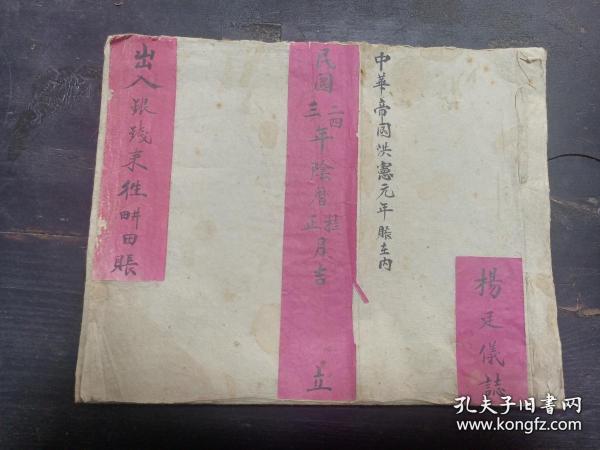 中華帝國洪憲元年賬在內
楊廷儀誌
民國三二四年陰曆正桂月吉立
出入銀錢来往畊田賬
孔夫子旧书网
www.kongfz.com